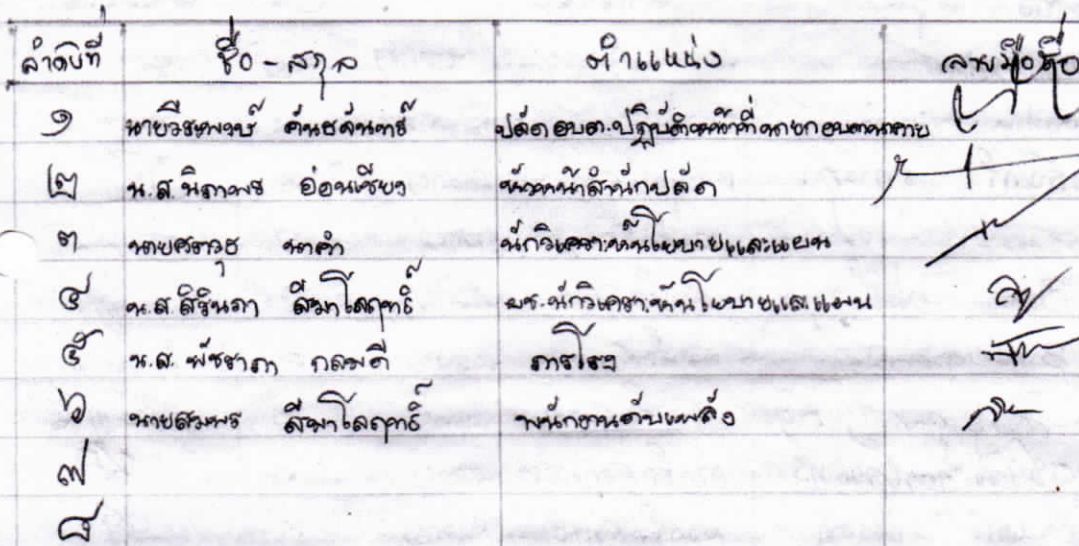 ลำดับที่ ชื่อ - สกุล ตำแหน่ง ลายมือชื่อ
๑ นายวีระพงษ์ ปลัด อบต.ปฏิบัติหน้าที่นายกอบต
๒ น.ส.นิภาพร อ่อนเขียว หัวหน้าสำนักปลัด
๓ นายศราวุธ นาคำ นักวิเคราะห์นโยบายและแผน
๔ น.ส.สิรินภา สีมาโสฤทธิ์ ผช.นักวิเคราะห์นโยบายและแผน
๕ น.ส. พัชราภา กลมดี ภารโรง
๖ นายสมพร สีมาโสฤทธิ์ พนักงานดับเพลิง
๗
๘